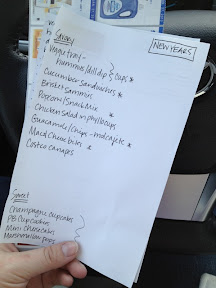 NEW YEARS
Savory
Veggie tray -
hummus/dill dip } cups *
Cucumber Sandwiches *
Brisket sammies
Popcorn/Snack Mix *
Chicken Salad in phyllo cups
Guacamole/Chips - indiv. *
Mac & Cheese bites *
Costco canapes
Sweet
Champagne cupcakes
PB Cup cookies
Mini Cheesecakes
Marshmallow pops